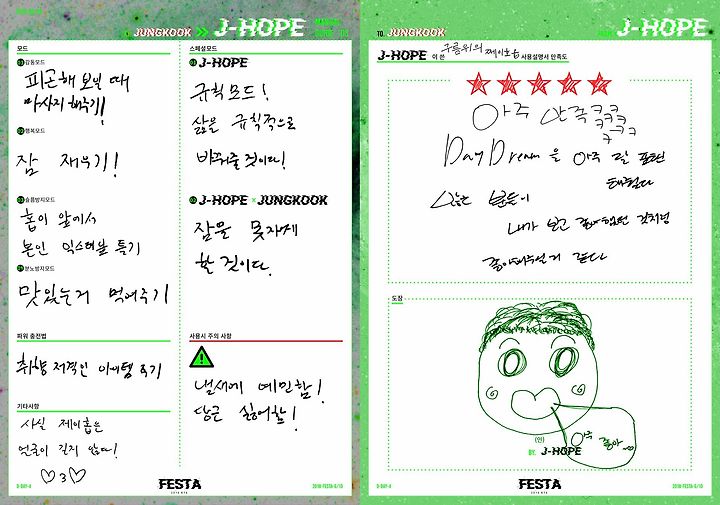 JUNGKOOK >> J-HOPE
모드
01 감동모드
피곤해 보일 때
마사지 해주기!
02 행복모드
잠 재우기!
03 슬픔방지모드
홉이 앞에서
본인 믹스테잎 듣기
04 분노방지모드
맛있는거 먹여주기
파워 충전법
취향 저격인 아이템 주기
기타사항
사실 제이홉은
얼굴이 길지 않다!
♡3♡
스페셜모드
01 J-HOPE
규칙모드!
삶을 규칙적으로
바꿔줄 것이다!
02 J-HOPE × JUNGKOOK
잠을 못자게
할 것이다.
사용시 주의 사항
냄새에 예민함!
당근 싫어함!
D-DAY-4
FESTA
2018 BTS
2018 FESTA 6/10
TO. JUNGKOOK
J-HOPE
J-HOPE 이 쓴 구름위의 제이홉 사용설명서 만족도
아주 만족ㅋㅋㅋ
ㅋㅋㅋ
ㅋㅋ
ㅋ
Day Dream을 아주 잘 표현
해줬다
쓰는 분들이
내가 보고 좋아했던 것처럼
좋아해주실거 같다
도장
아주 좋아
(인)
BY. J-HOPE
D-DAY-4
FESTA
2018 BTS
2018 FESTA 6/10